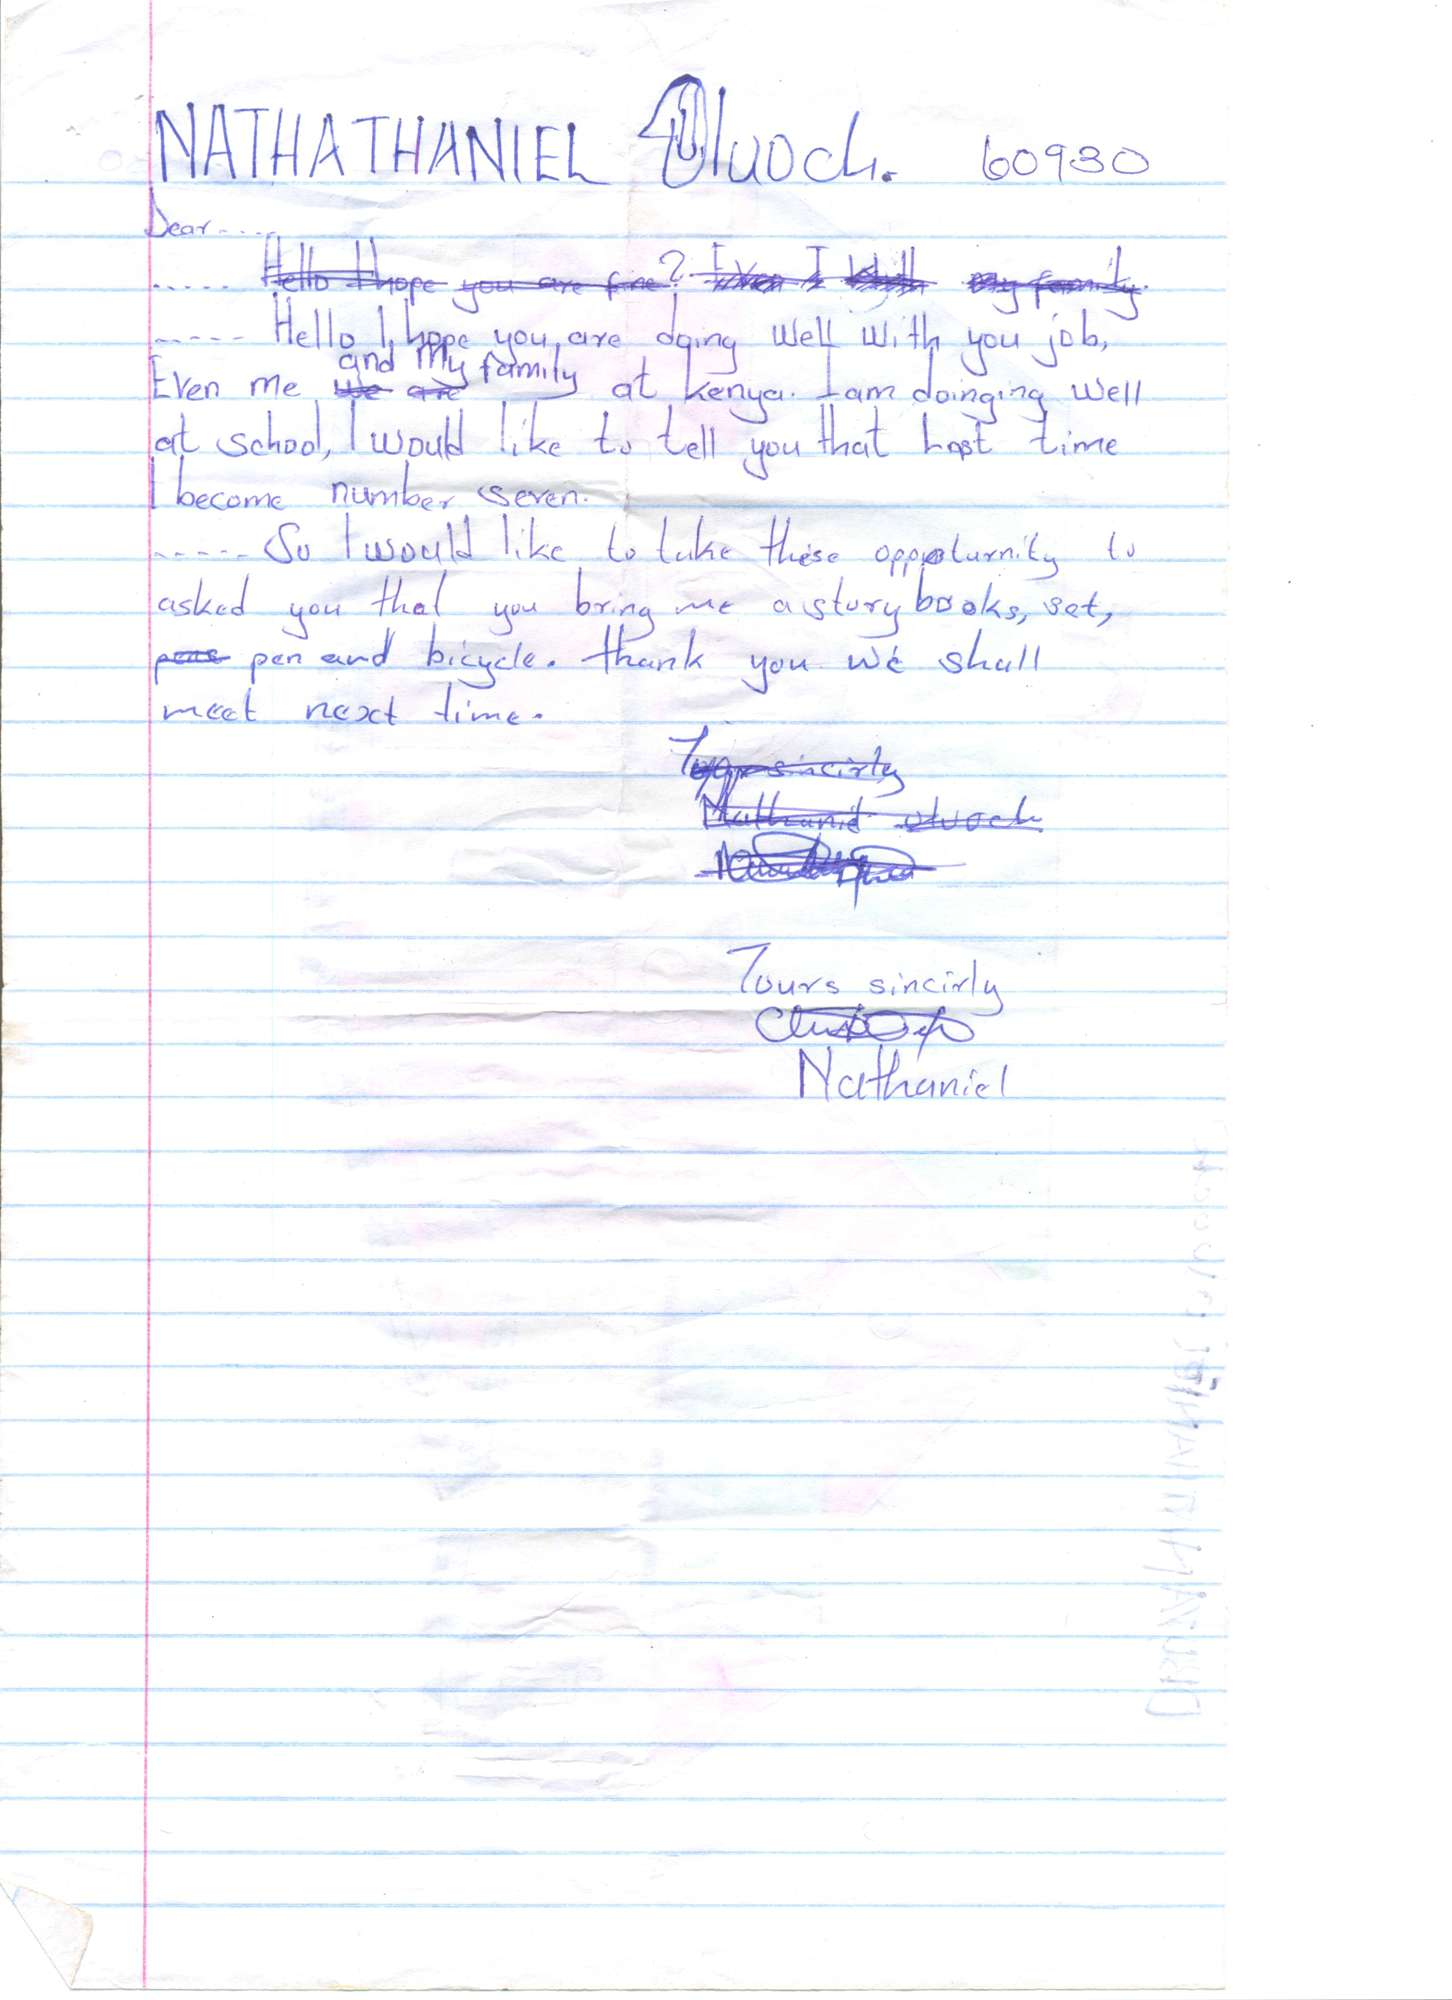 NATHATHANIEL Oluoch. 60930
Dear-----
----- Hello I hope you are fine? Even I my family.
----- Hello I hope you are doing well with you job,
and My family
Even me we are at kenya. I am doinging well
at school, I would like to tell you that last time
I become number seven.
----- So I would like to take these opportunity to
asked you that you bring me a story books, set,
pens pen and bicycle. thank you we shall
meet next time.
sincirly
oluoch
Yours sincirly
Nathaniel